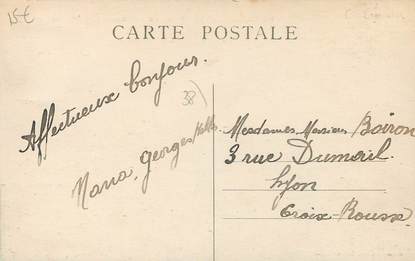 15€
CARTE POSTALE
Affectueux bonjour.
Nana, Georges
38
Mesdames, Boiron
3 rue Dumeril
Lyon
Croix-Rousse